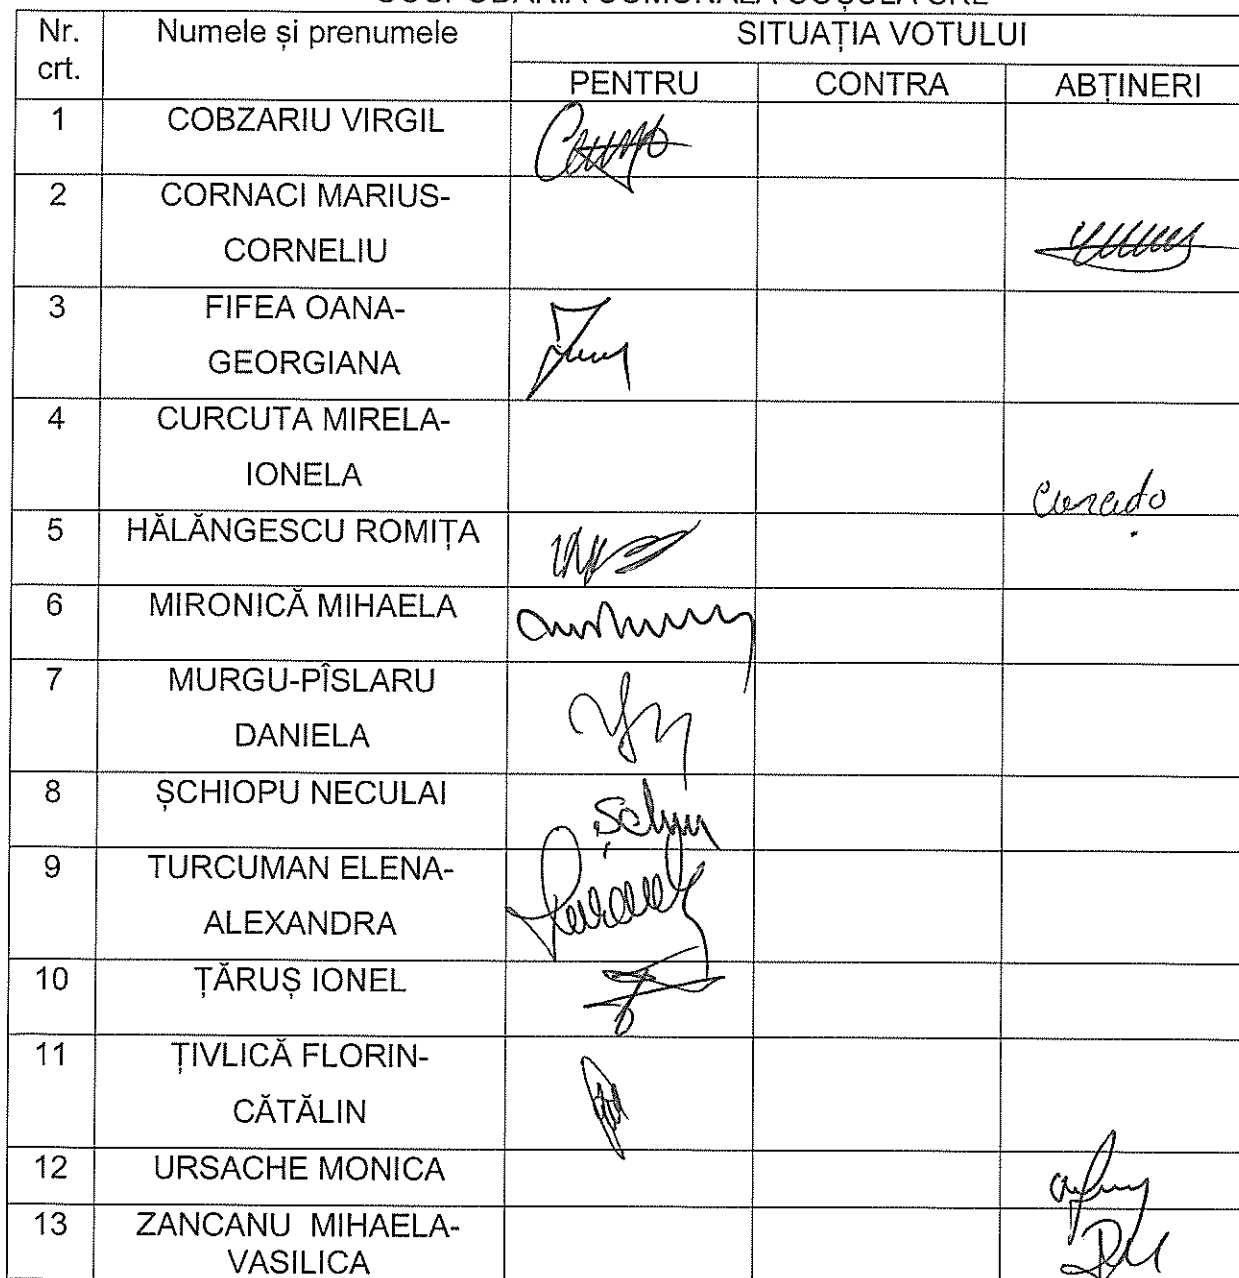 GOSPODĂRIA COMUNALĂ COȘULA SRL
Nr. crt. Numele și prenumele SITUAȚIA VOTULUI
PENTRU CONTRA ABȚINERI
1 COBZARIU VIRGIL
2 CORNACI MARIUS-
CORNELIU
3 FIFEA OANA-
GEORGIANA
4 CURCUTA MIRELA-
IONELA
5 HĂLĂNGESCU ROMIȚA
6 MIRONICĂ MIHAELA
7 MURGU-PÎSLARU
DANIELA
8 ȘCHIOPU NECULAI
9 TURCUMAN ELENA-
ALEXANDRA
10 ȚĂRUȘ IONEL
11 ȚIVLICĂ FLORIN-
CĂTĂLIN
12 URSACHE MONICA
13 ZANCANU MIHAELA-
VASILICA